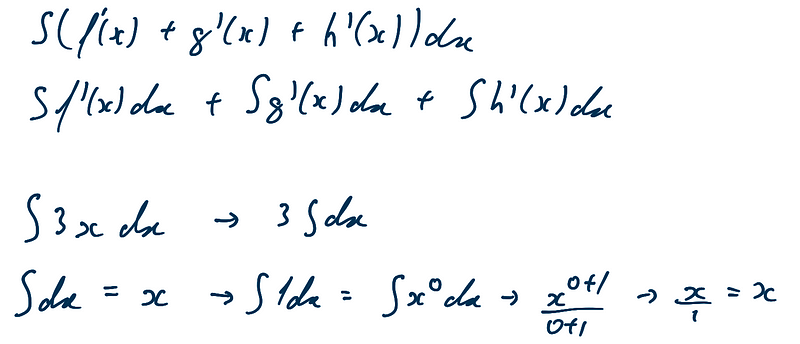 ∫(f'(x) + g'(x) + h'(x))dx
∫f'(x)dx + ∫g'(x)dx + ∫h'(x)dx
∫3x dx → 3∫dx
∫dx = x → ∫1dx = ∫x⁰dx → x⁰⁺¹/0+1 → x/1 = x